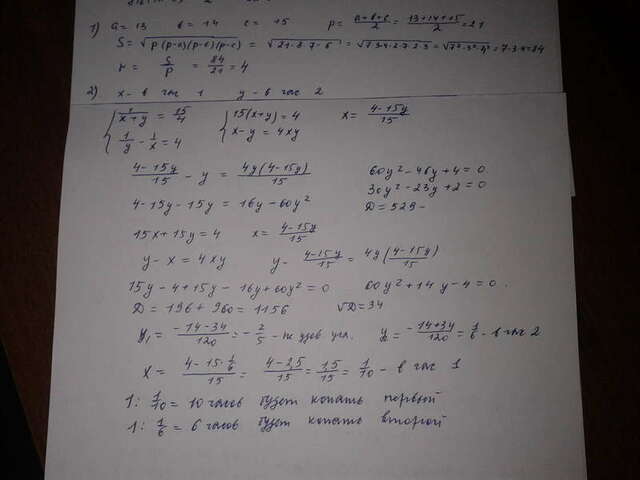 1) a = 13 в = 14 c = 15 p = (a+в+c)/2 = (13+14+15)/2 = 21
S = √(p(p-a)(p-в)(p-c)) = √(21·8·7·6) = √(7·3·4·2·7·2·3) = √(7²·3²·4²) = 7·3·4 = 84
r = S/p = 84/21 = 4
2) x - в час 1 y - в час 2
{ 1/(x+y) = 15/4 { 15(x+y) = 4 x = (4-15y)/15
1/y - 1/x = 4 x-y = 4xy
(4-15y)/15 - y = 4y(4-15y)/15 60y² - 46y + 4 = 0
4-15y-15y = 16y-60y² 30y² - 23y + 2 = 0
D = 529 -
15x + 15y = 4 x = (4-15y)/15
y - x = 4xy y - (4-15y)/15 = 4y((4-15y)/15)
15y - 4 + 15y - 16y + 60y² = 0 60y² + 14y - 4 = 0.
D = 196 + 960 = 1156 √D = 34
y₁ = (-14-34)/120 = -2/5 - не удов. усл. y₂ = (-14+34)/120 = 1/6 - в час 2
x = (4-15·1/6)/15 = (4-2,5)/15 = 1,5/15 = 1/10 - в час 1
1 : 1/10 = 10 часов будет копать первый
1 : 1/6 = 6 часов будет копать второй